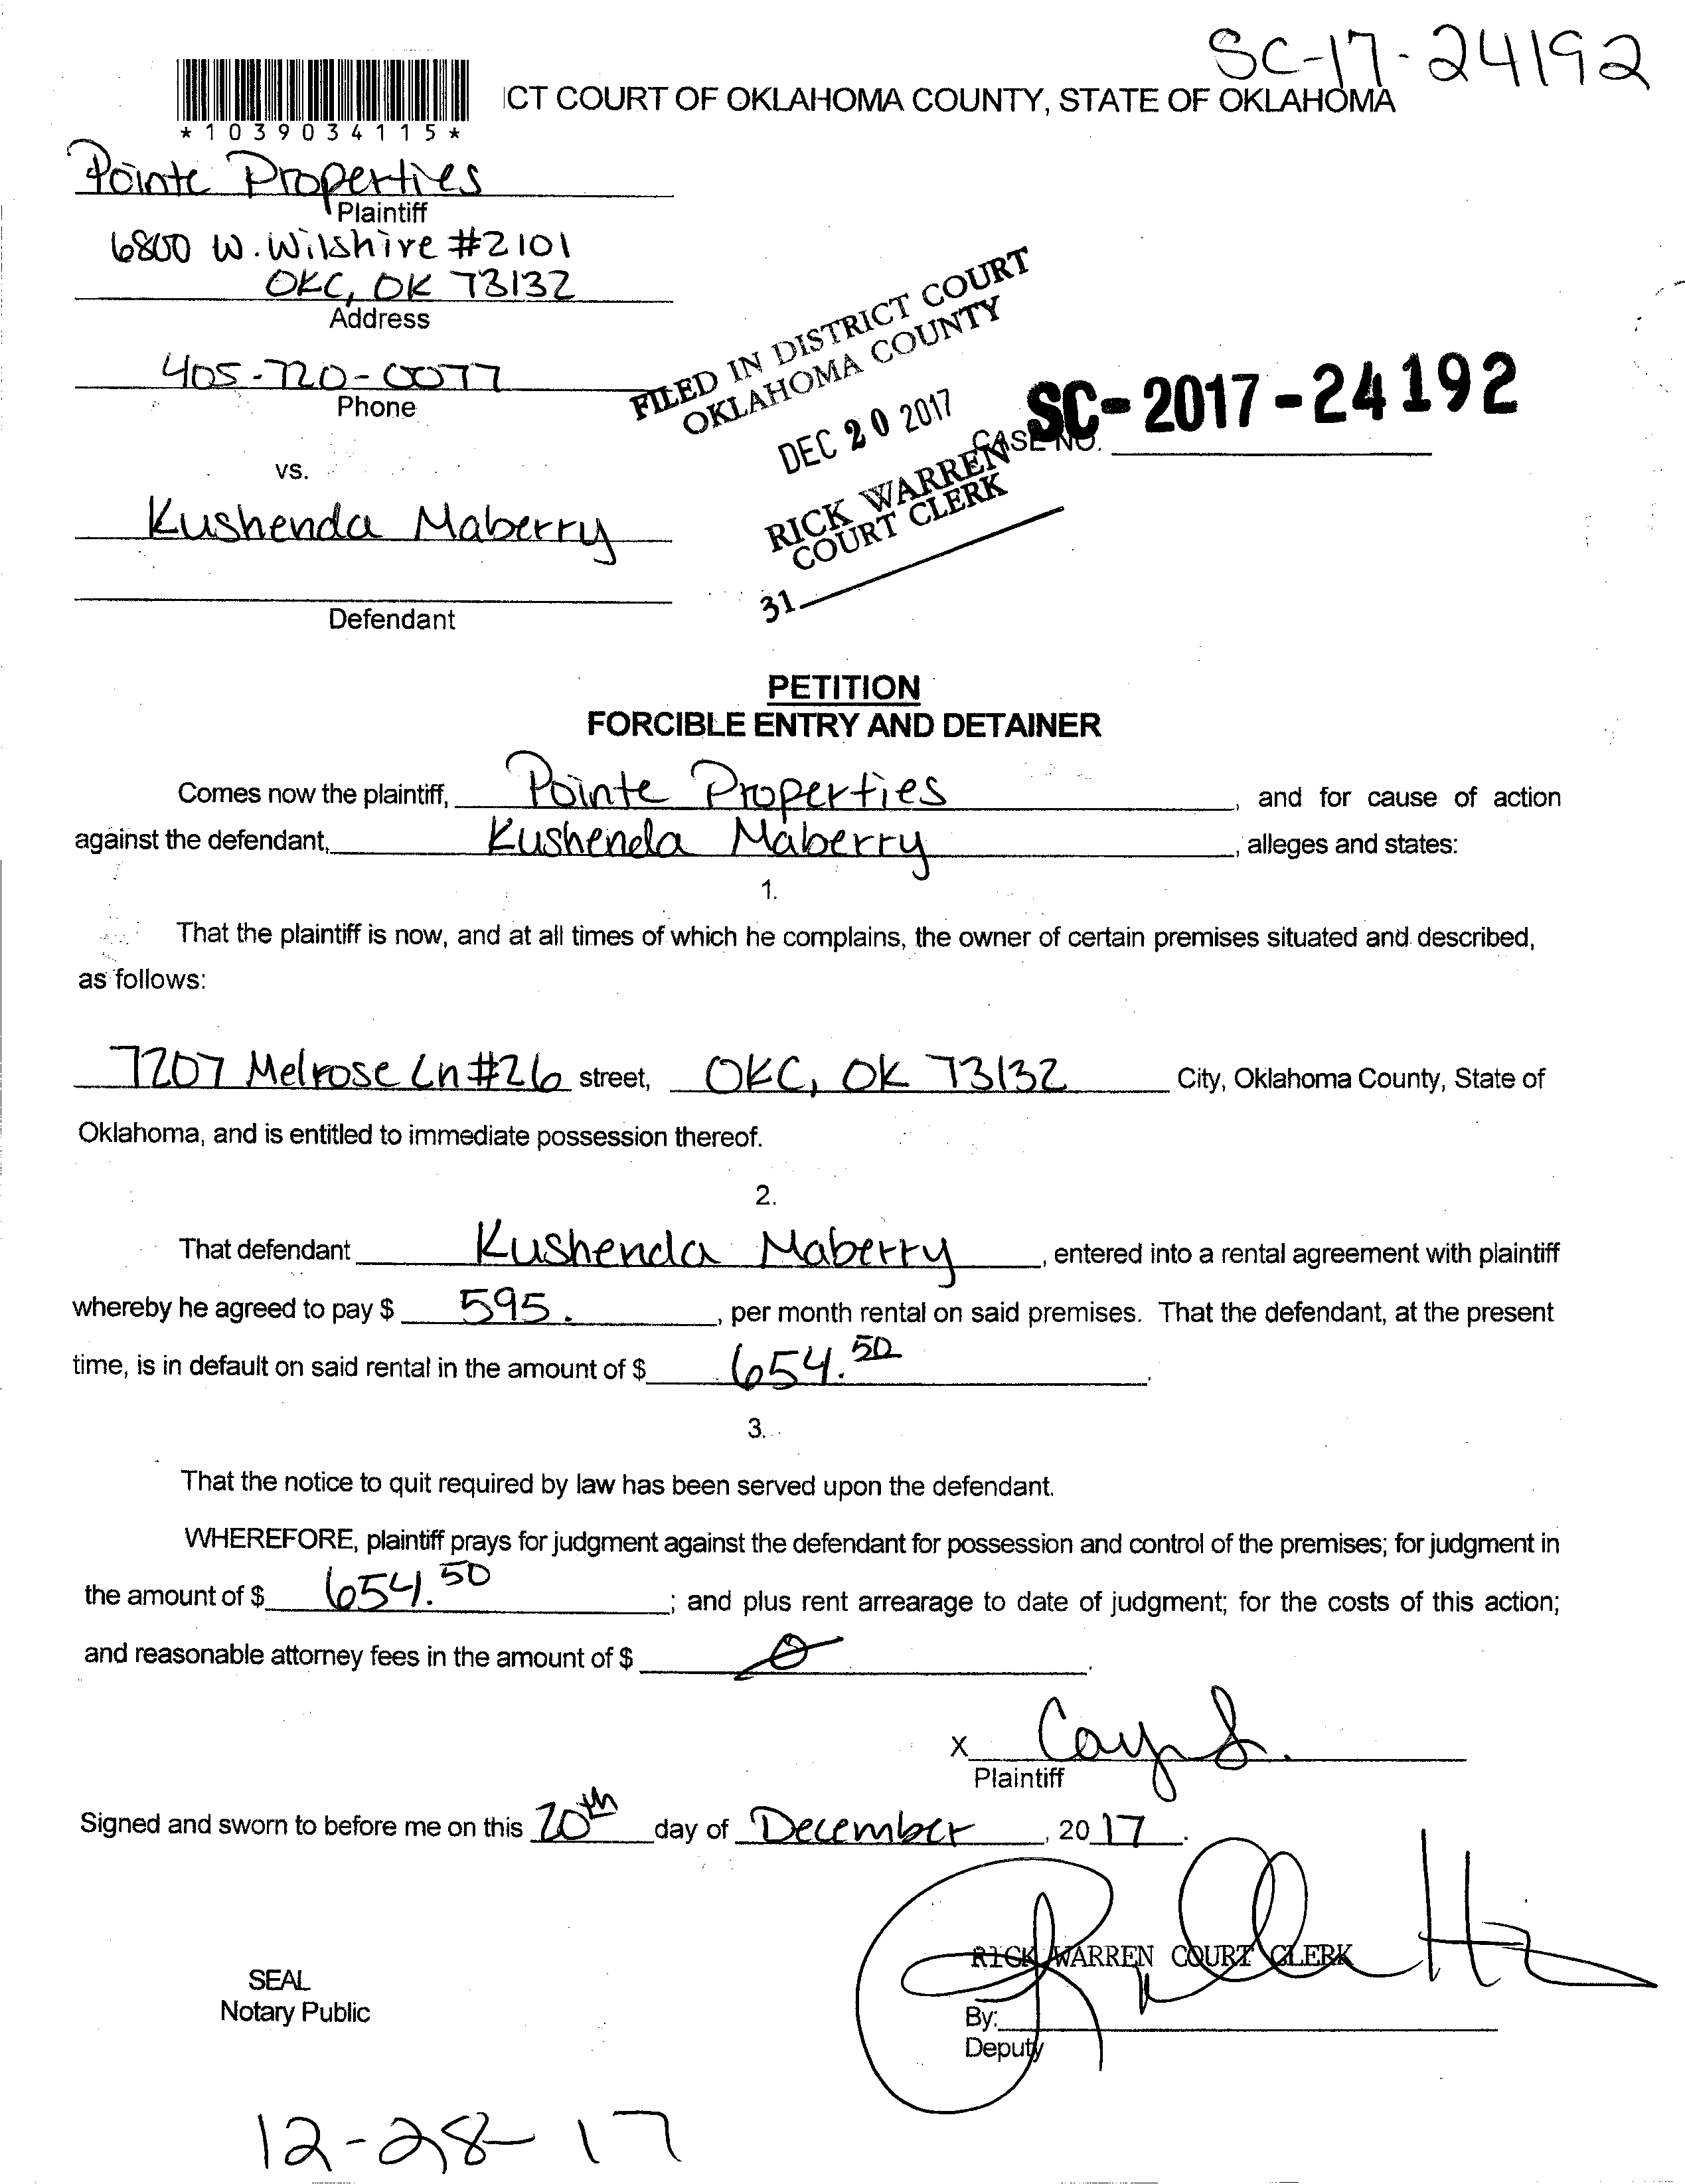 SC-17-24192
ICT COURT OF OKLAHOMA COUNTY, STATE OF OKLAHOMA
*1039034115*
Pointe Properties
Plaintiff
6800 W. Wilshire #2101
OKC, OK 73132
Address
405-720-0077
Phone
FILED IN DISTRICT COURT
OKLAHOMA COUNTY
DEC 20 2017
RICK WARREN
COURT CLERK
31
SC-2017-24192
CASE NO.
vs.
Kushenda Maberry
Defendant
PETITION
FORCIBLE ENTRY AND DETAINER
Comes now the plaintiff, Pointe Properties, and for cause of action
against the defendant, Kushenda Maberry, alleges and states:
1.
That the plaintiff is now, and at all times of which he complains, the owner of certain premises situated and described,
as follows:
7207 Melrose Ln #26 street, OKC, OK 73132 City, Oklahoma County, State of
Oklahoma, and is entitled to immediate possession thereof.
2.
That defendant Kushenda Maberry, entered into a rental agreement with plaintiff
whereby he agreed to pay $ 595. , per month rental on said premises. That the defendant, at the present
time, is in default on said rental in the amount of $ 654.50.
3.
That the notice to quit required by law has been served upon the defendant.
WHEREFORE, plaintiff prays for judgment against the defendant for possession and control of the premises; for judgment in
the amount of $ 654.50; and plus rent arrearage to date of judgment; for the costs of this action;
and reasonable attorney fees in the amount of $ 0.
X
Plaintiff
Signed and sworn to before me on this 20th day of December, 2017.
RICK WARREN COURT CLERK
SEAL
Notary Public
By:
Deputy
12-28-17